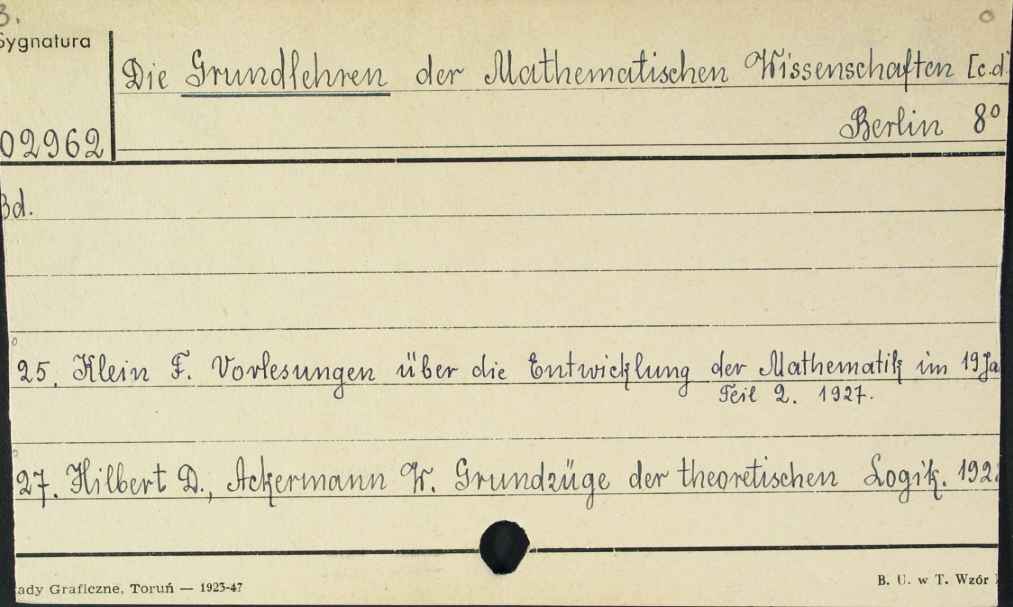 3.
Sygnatura
Die Grundlehren der Mathematischen Wissenschaften [c.d
Berlin 8°
02962
Bd.
25. Klein F. Vorlesungen über die Entwicklung der Mathematik im 19 Ja
Teil 2. 1927.
27. Hilbert D., Ackermann W. Grundzüge der theoretischen Logik. 192
ady Graficzne, Toruń — 1923-47
B. U. w T. Wzór